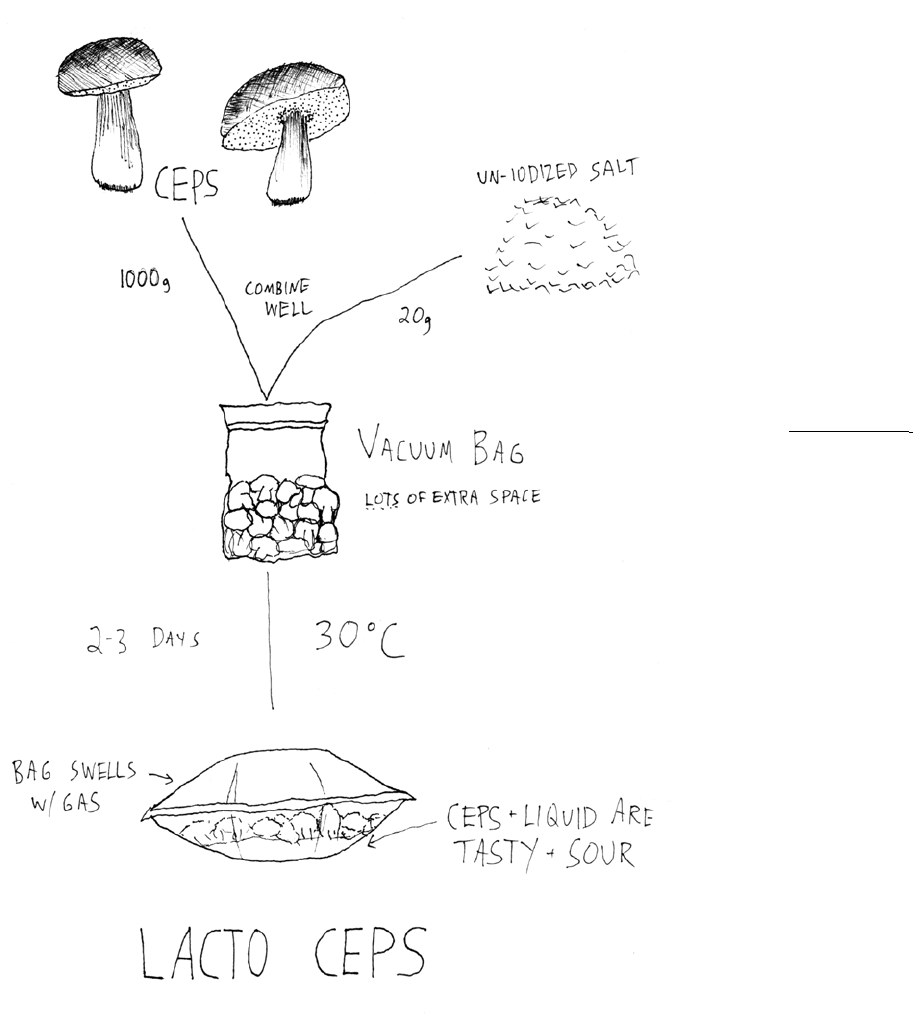 CEPS
UN-IODIZED SALT
1000g
COMBINE
WELL
20g
VACUUM BAG
LOTS OF EXTRA SPACE
2-3 DAYS
30°C
BAG SWELLS
W/ GAS
CEPS + LIQUID ARE
TASTY + SOUR
LACTO CEPS